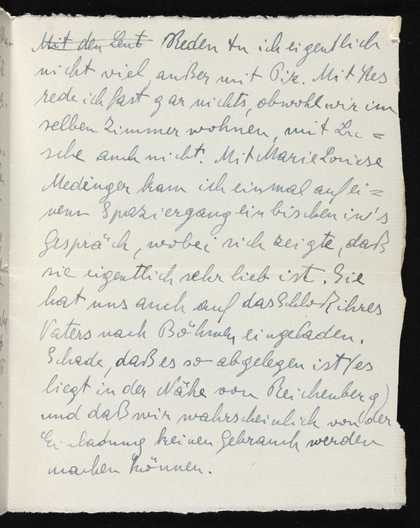 Mit den Leut Reden tu ich eigentlich
nicht viel, außer mit Dir. Mit Res
rede ich fast gar nichts, obwohl wir im
selben Zimmer wohnen, mit Lu=
sche auch nicht. Mit Marie Louise
Medinger kam ich einmal auf ei=
nem Spaziergang ein bischen in's
Gespräch, wobei sich zeigte, daß
sie eigentlich sehr lieb ist. Sie
hat uns auch auf das Schloß ihres
Vaters nach Böhmen eingeladen.
Schade, daß es so abgelegen ist (es
liegt in der Nähe von Reichenberg)
und daß wir wahrscheinlich von der
Einladung keinen Gebrauch werden
machen können.